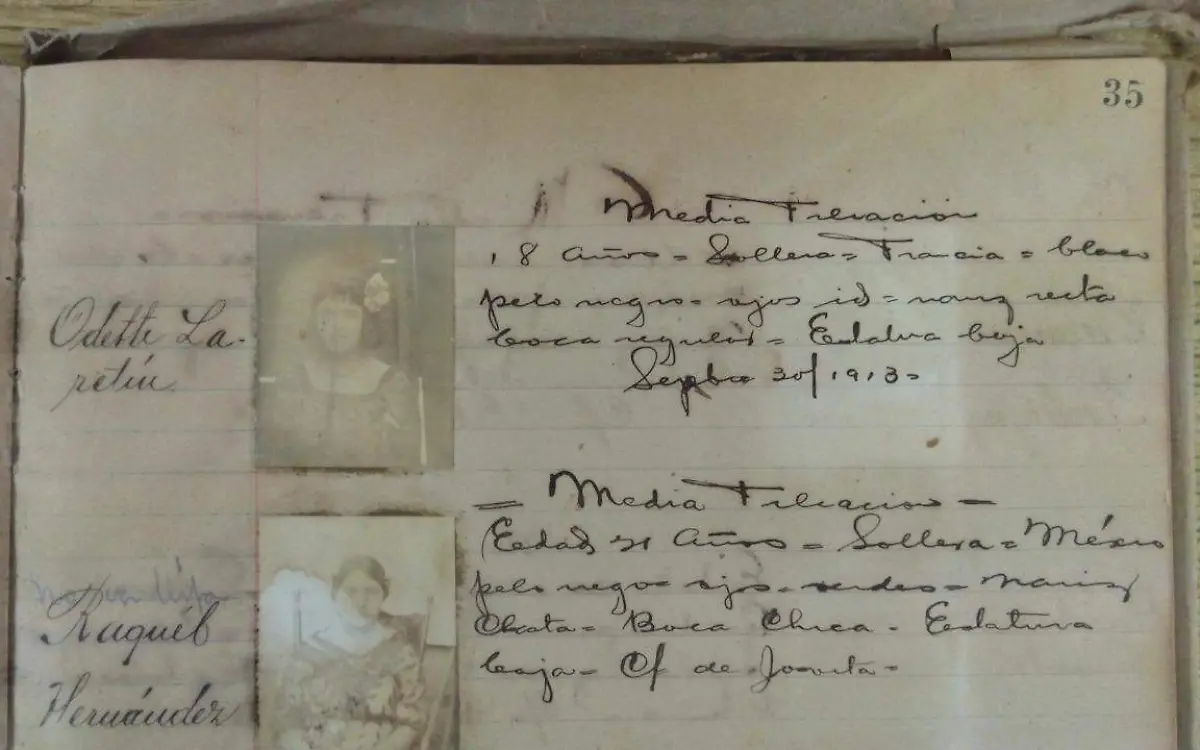 35
Media Filiacion
18 años = Soltera = Francia = blaco
Odette La-
pelo negro = ojos id = nariz recta
retiu
boca regular = Estatura baja
Sepbre 30/1913 =
= Media Filiacion =
Edad 21 Años = Soltera = México
pelo negro = ojos verdes = Nariz
Raquél
Chata = Boca Chica = Estatura
baja = Cf de Jovita =
Hernández